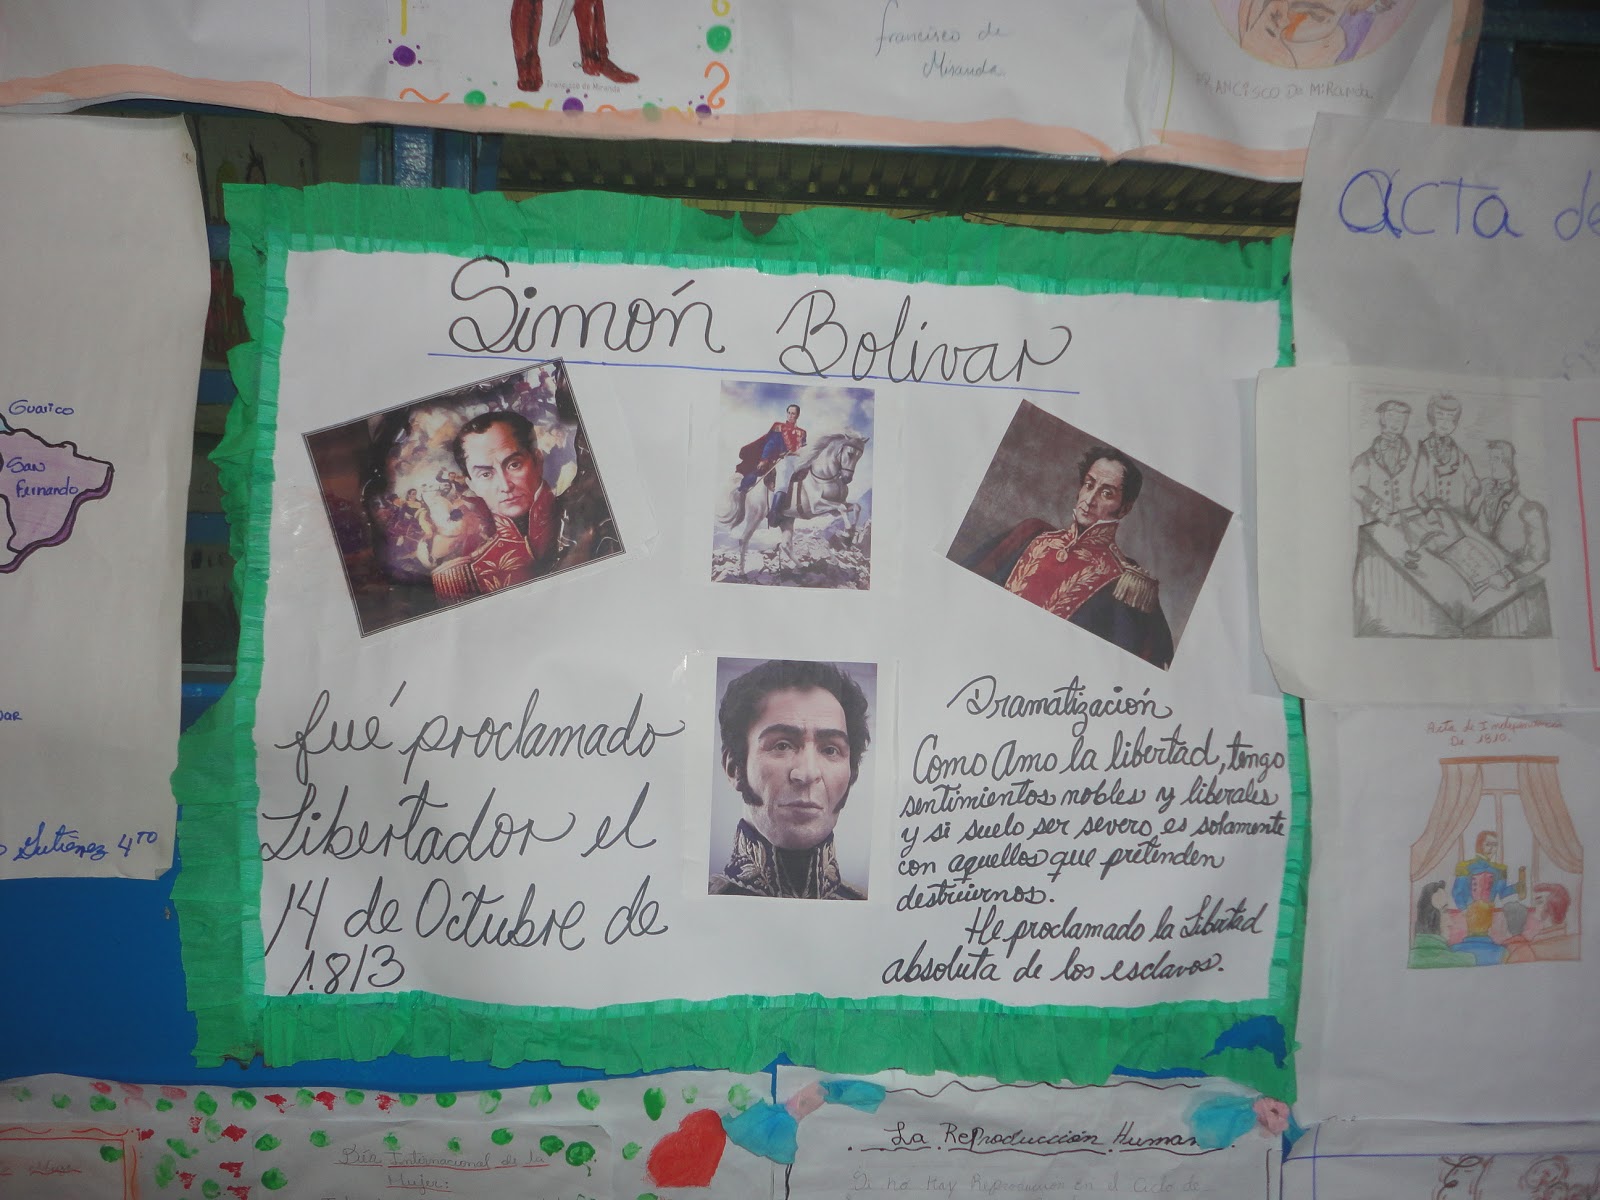 Francisco de Miranda
francisco de
Miranda
FRANCISCO De MiRanda
Acta de
Guarico
San
Fernando
Gutiérrez 4TO
Simón Bolívar
fué proclamado
Libertador el
14 de Octubre de
1.813
Dramatización
Como Amo la libertad, tengo
sentimientos nobles y liberales
y si suelo ser severo, es solamente
con aquellos que pretenden
destruirnos.
He proclamado la Libertad
absoluta de los esclavos.
Acta de Independencia
De 1810.
Internacional de la
Mujer:
La Reproducción Humana